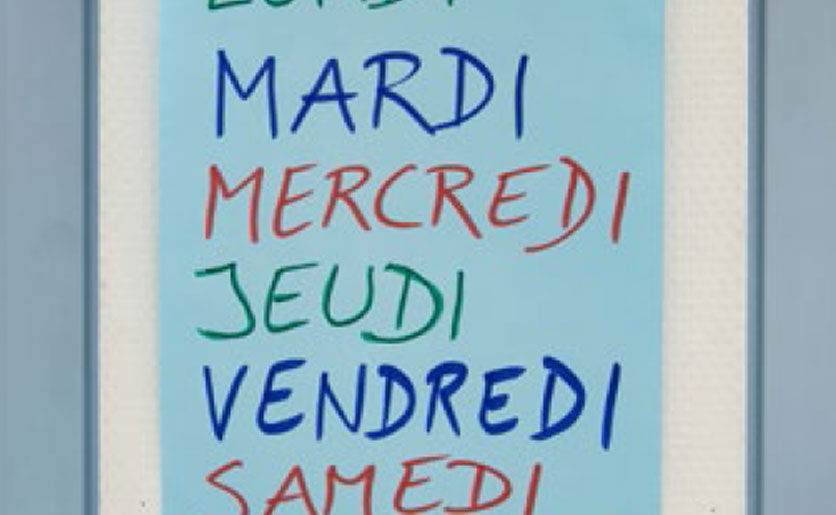 LUNDI
MARDI
MERCREDI
JEUDI
VENDREDI
SAMEDI